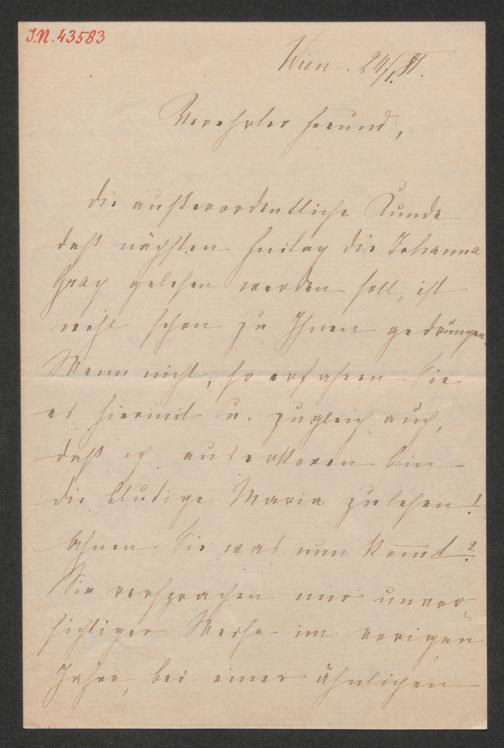 J.N. 43583
Wien. 24/1. 81.
Verehrter Freund,
die außerordentliche Kunde
daß nächsten Freitag die Johanna
Gray gelesen werden soll, ist
wohl schon zu Ihnen gedrungen.
Wenn nicht, so erfahren Sie
es hiermit u. zugleich auch,
daß ich auserkoren bin
die blutige Maria zu lesen!
Ahnen Sie was nun kommt?
Sie versprachen mir unvor
sichtiger Weise im vorigen
Jahre, bei einer ähnlichen